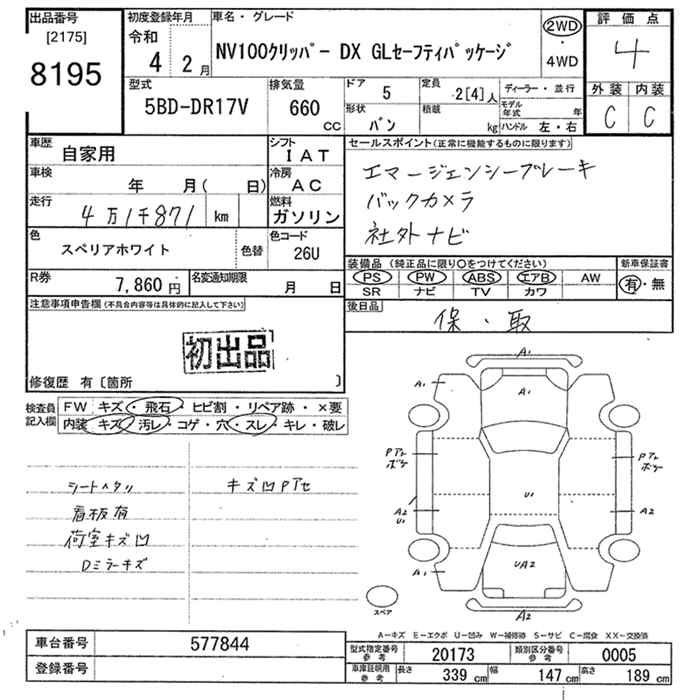 出品番号
[2175]
8195
初度登録年月
令和
4 2月
車名・グレード
NV100クリッパー DX GLセーフティパッケージ
2WD
・
4WD
評価点
4
外装 内装
C C
型式
5BD-DR17V
排気量
660
cc
ドア 5
定員 2[4]人
形状 バン
積載 kg
ディーラー・並行
モデル年式 年
ハンドル 左・右
車歴
自家用
シフト
IAT
車検
年 月( 日)
冷房
AC
走行
4万1千871 km
燃料
ガソリン
色
スペリアホワイト
色替
色コード
26U
R券
7,860円
名変通知期限
月 日
セールスポイント(正常に機能するものに限ります)
エマージェンシーブレーキ
バックカメラ
社外ナビ
装備品(純正品に限り○をつけてください)
PS PW ABS エアB AW
SR ナビ TV カワ
新車保証書
有・無
後日品
保・取
注意事項申告欄(不具合内容等は具体的に記入して下さい)
初出品
修復歴 有〔箇所 〕
検査員記入欄
FW キズ・飛石・ヒビ割・リペア跡・×要
内装 キズ・汚レ・コゲ・穴・スレ・キレ・破レ
シートヘタリ
看板有
荷室キズ凹
Dミラーキズ
キズ凹Pアセ
A1
A1
A1
A1
Pアト
ボケ
Pアト
ボケ
A2
U1
U1
A2
UA2
A1
A1
A2
スペア
A-キズ E-エクボ U-凹み W-補修跡 S-サビ C-腐食 XX-交換済
車台番号
577844
登録番号
型式指定番号
参考
20173
類別区分番号
参考
0005
車庫証明用
参考
長さ 339 cm
幅 147 cm
高さ 189 cm